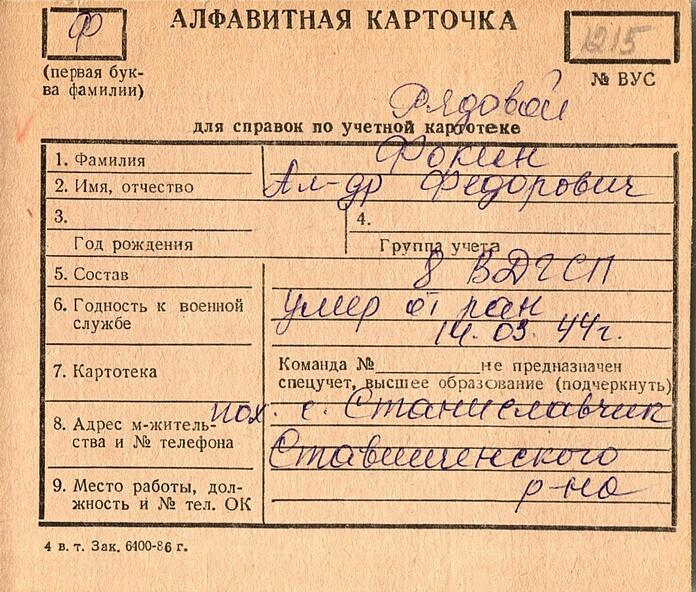 Ф
АЛФАВИТНАЯ КАРТОЧКА
1215
(первая бук-
ва фамилии)
№ ВУС
Рядовой
для справок по учетной картотеке
1. Фамилия Фокин
2. Имя, отчество Ал-др Федорович
3. 4.
Год рождения Группа учета
5. Состав 8 ВДГСП
6. Годность к военной умер от ран
службе 14.03.44г.
7. Картотека Команда №__________не предназначен
спецучет, высшее образование (подчеркнуть)
8. Адрес м-житель- пох. с. Станиславчик
ства и № телефона Ставищенского
9. Место работы, дол- р-на
жность и № тел. ОК
4 в. т. Зак. 6400-86 г.